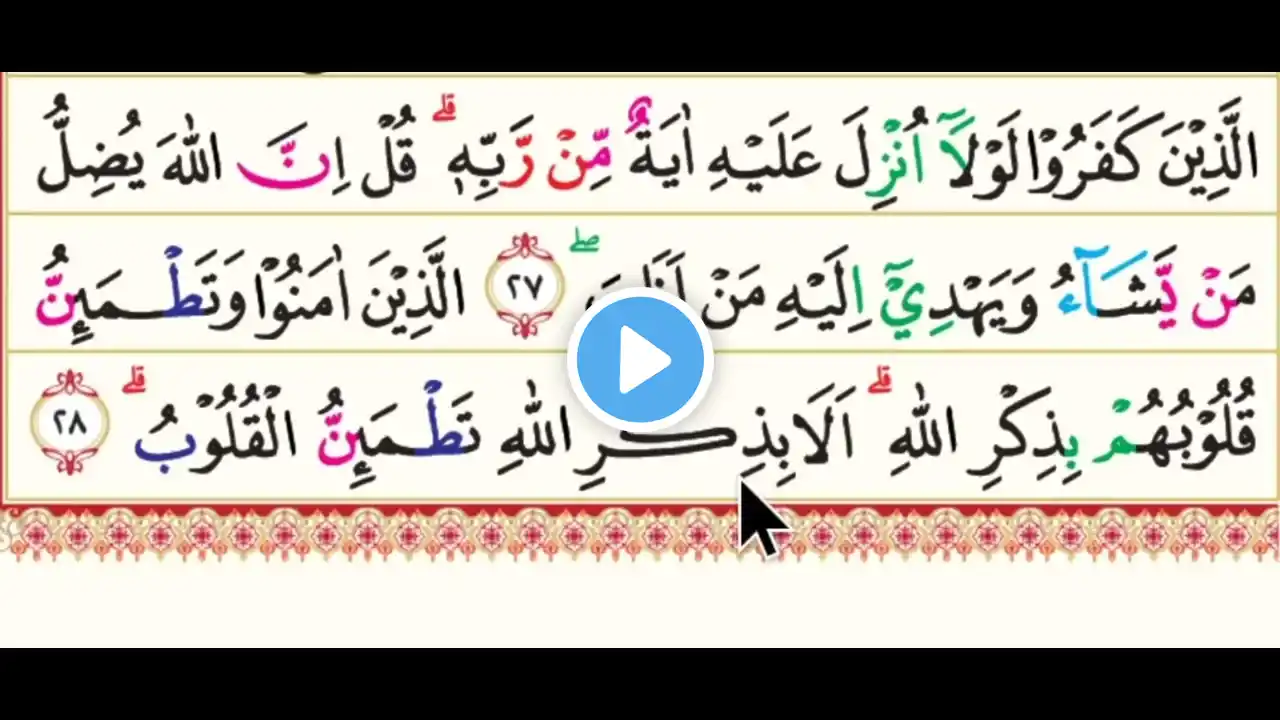 الَّذِيْنَ كَفَرُوْا لَوْلَآ اُنْزِلَ عَلَيْهِ اٰيَةٌ مِّنْ رَّبِّهٖ ۗ قُلْ اِنَّ اللّٰهَ يُضِلُّ
مَنْ يَّشَاۤءُ وَيَهْدِيْٓ اِلَيْهِ مَنْ ۖ ٢٧ الَّذِيْنَ اٰمَنُوْا وَتَطْمَىِٕنُّ
قُلُوْبُهُمْ بِذِكْرِ اللّٰهِ ۗ اَلَا بِذِكْرِ اللّٰهِ تَطْمَىِٕنُّ الْقُلُوْبُ ۗ ٢٨